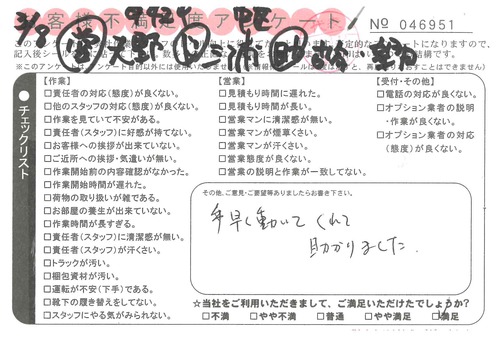 お客様不満足度アンケート
No 046951
3/9
チェックリスト
【作業】
□責任者の対応(態度)が良くない。
□他のスタッフの対応(態度)が良くない。
□作業を見ていて不安がある。
□責任者(スタッフ)に好感が持てない。
□お客様への挨拶が出来ていない。
□ご近所への挨拶・気遣いが無い。
□作業開始前の内容確認がなかった。
□作業開始時間が遅れた。
□荷物の取り扱いが雑である。
□お部屋の養生が出来ていない。
□作業時間が長すぎる。
□責任者(スタッフ)に清潔感が無い。
□責任者(スタッフ)が汗くさい。
□トラックが汚い。
□梱包資材が汚い。
□運転が不安(下手)である。
□靴下の履き替えをしてない。
□スタッフにやる気がみられない。
【営業】
□見積もり時間に遅れた。
□見積もり時間が長い。
□営業マンに清潔感が無い。
□営業マンが煙草くさい。
□営業マンが汗くさい。
□営業態度が良くない。
□営業の説明と作業が一致してない。
【受付・その他】
□電話の対応が良くない。
□オプション業者の説明
・作業が良くない。
□オプション業者の対応
(態度)が良くない。
その他、ご意見・ご要望等ありましたらお書き下さい。
手早く動いてくれて
助かりました。
☆当社をご利用いただきまして、ご満足いただけたでしょうか?
□不満 □やや不満 □普通 □やや満足 □満足